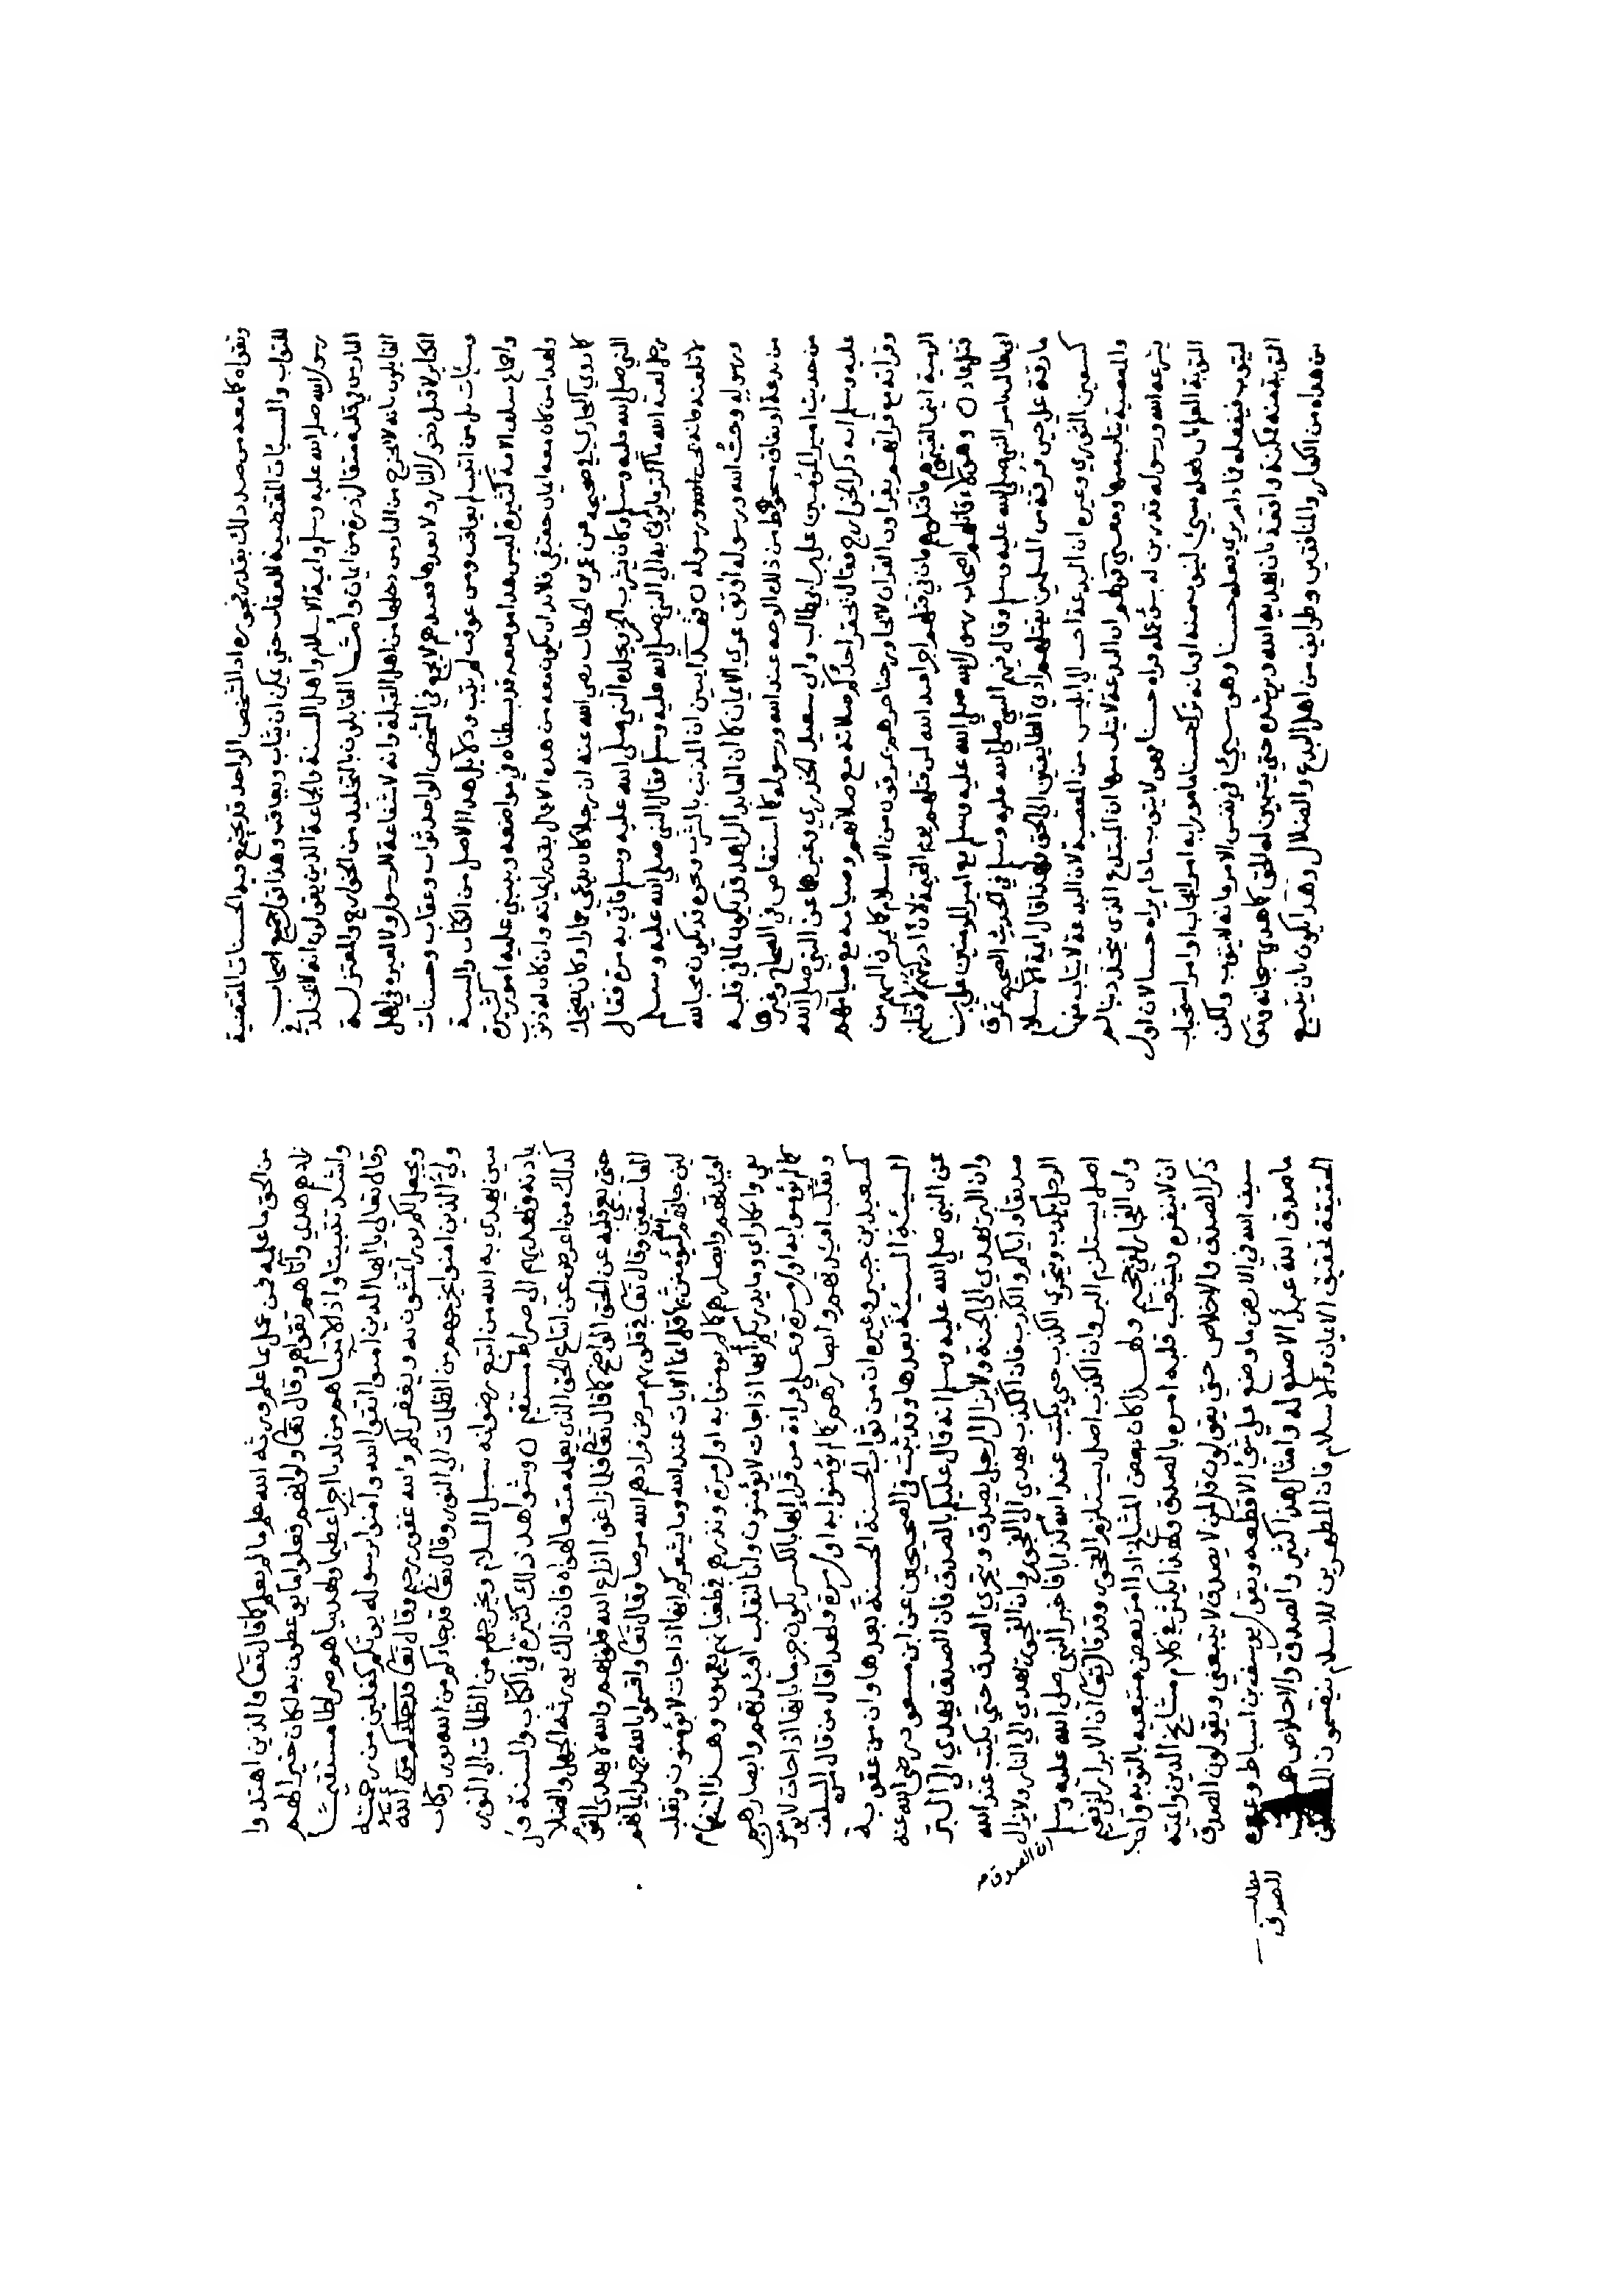 وتقواه كما معه من ضد ذلك بقدر فجوره اذ الشخص الواحد قد يجتمع فيه الحسنات المقتضية
للثواب والسيئات المقتضية للعقاب حتى يمكن ان يثاب ويعاقب وهذا قول جميع اصحاب
رسول الله صلى الله عليه وسلم وايمة الاسلام واهل السنة والجماعة الذين يقولون انه لا يخلد في
النار من في قلبه مثقال ذرة من ايمان واما القايلون بالتخليد من الخوارج والمعتزلة
القايلون بانه لا يخرج من النار من دخلها من اهل القبلة وانه لا شفاعة للرسول ولا لغيره في اهل
الكباير لا قبل دخول النار ولا بعدها فعندهم لا يجتمع في الشخص الواحد ثواب وعقاب وحسنات
وسيئات بل من اثيب لم يعاقب ومن عوقب لم يثب ودلايل هذا الاصل من الكتاب والسنة
واجماع سلف الامة كثيرة ليس هذا موضعه قد بسطناه في مواضعه وينبني عليه امور كثيرة
ولهذا من كان معه ايمان حقيقي فلا بد ان يكون معه من هذه الاعمال بقدر ايمانه وان كان له ذنوب
كما روى البخاري في صحيحه عن عمر بن الخطاب رضي الله عنه ان رجلا كان يدعى حمارا وكان يضحك
النبي صلى الله عليه وسلم وكان يشرب الخمر ويجلده النبي صلى الله عليه وسلم فاتي به مرة فقال
رجل لعنه الله ما اكثر ما يؤتى به الى النبي صلى الله عليه وسلم فقال النبي صلى الله عليه وسلم
لا تلعنه فانه يحب الله ورسوله فهذا يبين ان المذنب بالشرب وغيره قد يكون محبا لله
ورسوله وحب الله ورسوله اوثق عرى الايمان كما ان العابد الزاهد قد يكون لما في قلبه
من بدعة او نفاق مسخوط من ذلك الوجه عند الله ورسوله كما استفاض في الصحاح وغيرها
من حديث امير المؤمنين علي بن ابي طالب وابي سعيد الخدري وغيرهما عن النبي صلى الله
عليه وسلم انه ذكر الخوارج فقال يحقر احدكم صلاته مع صلاتهم وصيامه مع صيامهم
وقراته مع قراتهم يقراون القران لا يجاوز حناجرهم يمرقون من الاسلام كما يمرق السهم من
الرمية اينما لقيتموهم فاقتلوهم فان في قتلهم اجرا عند الله لمن قتلهم يوم القيمة لان ادركتهم لاقتلنهم
قتل عاد وهولاء قاتلهم اصحاب رسول الله صلى الله عليه وسلم مع امير المؤمنين علي بن
ابي طالب بامر النبي صلى الله عليه وسلم وقال فيهم النبي صلى الله عليه وسلم في الحديث الصحيح تمرق
مارقة على حين فرقة من المسلمين يقتلهم ادنى الطايفتين الى الحق ولهذا قال ايمة الاسلام
كسفين الثوري وغيره ان البدعة احب الى ابليس من المعصية لان البدعة لا يتاب منها
والمعصية يتاب منها ومعنى قولهم ان البدعة لا يتاب منها ان المبتدع الذي يتخذ دينا لم
يشرعه الله ورسوله قد زين له سوء عمله فراه حسنا فهو لا يتوب ما دام يراه حسنا لان اول
التوبة العلم بان فعله سيئ ليتوب منه او بانه ترك حسنا مامورا به امر ايجاب او امر استحباب
ليتوب فيفعله فما دام يرى فعله حسنا وهو سيئ في نفس الامر فانه لا يتوب ولكن
التوبة منه ممكنة واقعة بان يهديه الله ويرشده حتى يتبين له الحق كما هدى سبحانه وتعا
من هداه من الكفار والمنافقين وطوايف من اهل البدع والضلال وهذا يكون بان يتبع
من الحق ما علمه فمن عمل بما علم ورثه الله علم ما لم يعلم كما قال تعا والذين اهتدوا
زادهم هدى واتاهم تقواهم وقال تعا ولو انهم فعلوا ما يوعظون به لكان خيرا لهم
واشد تثبيتا واذا لاتيناهم من لدنا اجرا عظيما ولهديناهم صراطا مستقيما
وقال تعالى يا ايها الذين امنوا اتقوا الله وامنوا برسوله يوتكم كفلين من رحمته
ويجعل لكم نورا تمشون به ويغفر لكم والله غفور رحيم وقال تعا الله
ولي الذين امنوا يخرجهم من الظلمات الى النور وقال تعا قد جاءكم من الله نور وكتاب
مبين يهدي به الله من اتبع رضوانه سبل السلام ويخرجهم من الظلمات الى النور
باذنه ويهديهم الى صراط مستقيم وشواهد ذلك كثيرة في الكتاب والسنة وكل
كذلك من اعرض عن اتباع الحق الذي يعلمه متبعا لهواه فان ذلك يورثه الجهل والضلال
حتى يعمي قلبه عن الحق الواضح كما قال تعا فلما زاغوا ازاغ الله قلوبهم والله لا يهدي القوم
الفاسقين وقال تعا في قلوبهم مرض فزادهم الله مرضا وقال تعا واقسموا بالله جهد ايمانهم
لين جاتهم اية ليؤمنن بها قل انما الايات عند الله وما يشعركم انها اذا جات لا يؤمنون ونقلب
افيدتهم وابصارهم كما لم يومنوا به اول مرة ونذرهم في طغيانهم يعمهون وهذا استفهام
نفي وانكار اي وما يدريكم انها اذا جات لا يؤمنون وانا نقلب افيدتهم وابصارهم
كما لم يؤمنوا به اول مرة وعلى قراءة من قرا انها بالكسر يكون جزما بانها اذا جات لا يؤمنون
ونقلب افيدتهم وابصارهم كما لم يؤمنوا به اول مرة ولهذا قال من قال من السلف
كسعيد بن جبير وغيره ان من ثواب الحسنة الحسنة بعدها وان من عقوبة
السيئة السيئة بعدها وقد ثبت في الصحيحين عن ابن مسعود رضي الله عنه
عن النبي صلى الله عليه وسلم انه قال عليكم بالصدق فان الصدق يهدي الى البر
وان البر يهدي الى الجنة ولا يزال الرجل يصدق ويتحرى الصدق حتى يكتب عند الله
صديقا واياكم والكذب فان الكذب يهدي الى الفجور وان الفجور يهدي الى النار ولا يزال
الرجل يكذب ويتحرى الكذب حتى يكتب عند الله كذابا فاخبر النبي صلى الله عليه وسلم
ان الصدق
اصل يستلزم البر وان الكذب اصل يستلزم الفجور وقد قال تعا ان الابرار لفي نعيم
وان الفجار لفي جحيم ولهذا كان بعض المشايخ اذا امر بعض متبعيه بالتوبة واحب
ان لا ينفره ولا يشعب قلبه امره بالصدق ولهذا يكثر في كلام مشايخ الدين وايمته
ذكر الصدق والاخلاص حتى يقولون قل لمن لا يصدق لا يتبعني ويقولون الصدق
سيف الله في الارض ما وضع على شئ الا قطعه ويقول يوسف بن اسباط وغيره
مطلب
الصدق
ما صدق الله عبد الا صنع له وامثال هذا كثير والصدق والاخلاص هما
الحقيقة تحقيق الايمان والاسلام فان المظهرين للاسلام ينقسمون الى